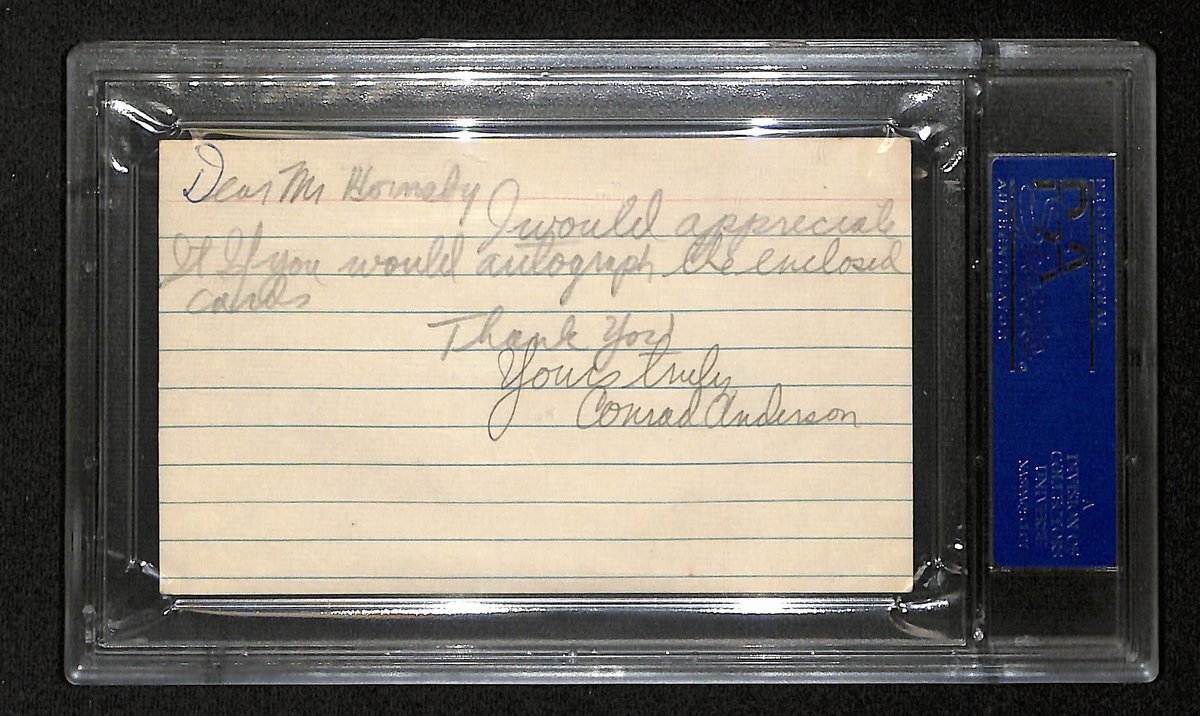 Dear Mr Hornsby
I would appreciate
It If you would autograph the enclosed
cards
Thank You
Yours truly
Conrad Anderson
PSA
PROFESSIONAL
AUTHENTICATOR
A
DIVISION OF
COLLECTORS
UNIVERSE
NASDAQ: CLCT